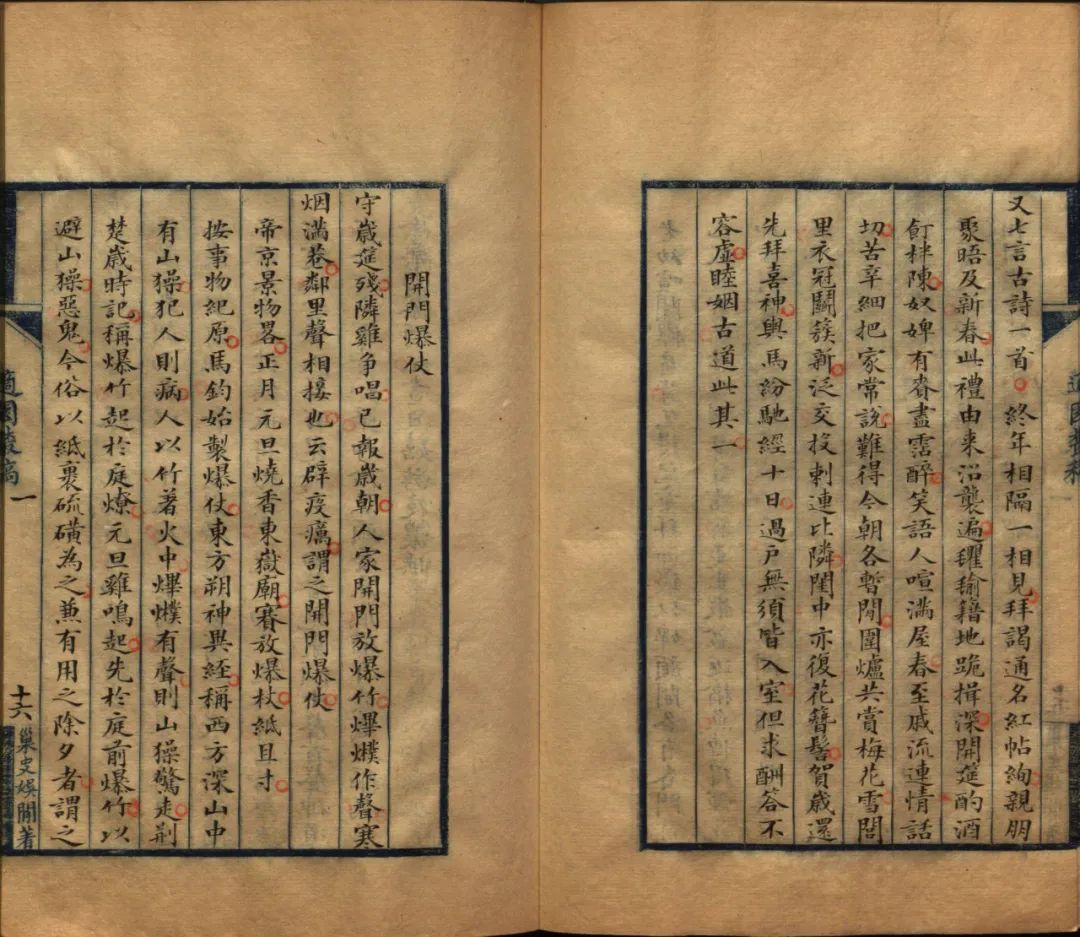 又七言古詩一首終年相隔一相見拜謁通名紅帖絢親朋
聚晤及新春此禮由来沿襲遍氍毹籍地跪揖深開筵酌酒
飣柈陳奴婢有賚盡霑醉笑語人喧滿屋春至戚流連情話
切苦辛細把家常說難得今朝各暫閒圍爐共賞梅花雪閭
里衣冠鬬簇新泛交投刺連比隣閨中亦復花簪髻賀歲還
先拜喜神輿馬紛馳經十日過戶無須皆入室但求酬答不
容虛睦姻古道此其一
開門爆仗
守歲筵殘隣雞爭唱已報歲朝人家開門放爆竹爆爆作聲寒
烟滿巷鄰里聲相接也云辟疫癘謂之開門爆仗
帝京景物畧正月元旦燒香東嶽廟賽放爆杖紙且寸
按事物紀原馬鈞始製爆仗東方朔神異經稱西方深山中
有山獠犯人則病人以竹著火中熚爆有聲則山獠驚走荆
楚歲時記稱爆竹起於庭燎元旦雞鳴起先於庭前爆竹以
避山獠惡鬼今俗以紙裹硫磺為之兼有用之除夕者謂之
適園叢稿 一
十六
巢史娛閒著